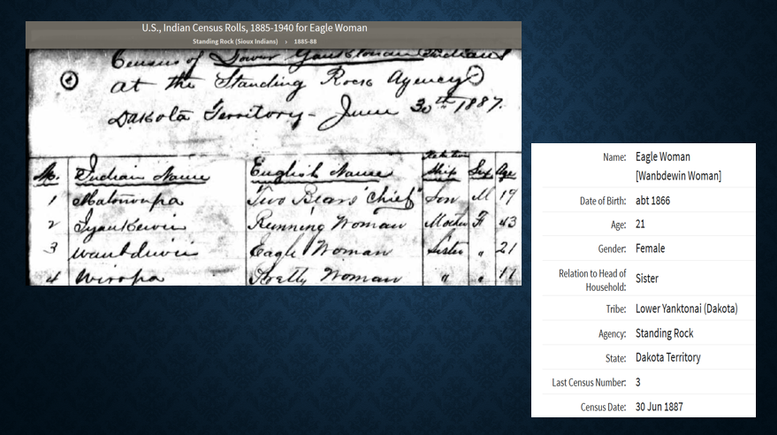 U.S., Indian Census Rolls, 1885-1940 for Eagle Woman
Standing Rock (Sioux Indians) › 1885-88
Census of Lower Yanktonai Indians
at the Standing Rock Agency
Dakota Territory - June 30th 1887.
No. Indian Name English Name Relation Ship Sex Age
1 Matononpa Two Bears "Chief" Son M 19
2 Iyankewin Running Woman Mother F 43
3 Wanbdiwin Eagle Woman Sister " 21
4 Winopa Pretty Woman " " 11
Name: Eagle Woman
[Wanbdewin Woman]
Date of Birth: abt 1866
Age: 21
Gender: Female
Relation to Head of
Household: Sister
Tribe: Lower Yanktonai (Dakota)
Agency: Standing Rock
State: Dakota Territory
Last Census Number: 3
Census Date: 30 Jun 1887